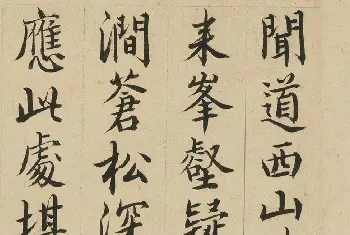 聞道西山
来峯壑疑
澗蒼松深
應此處堪